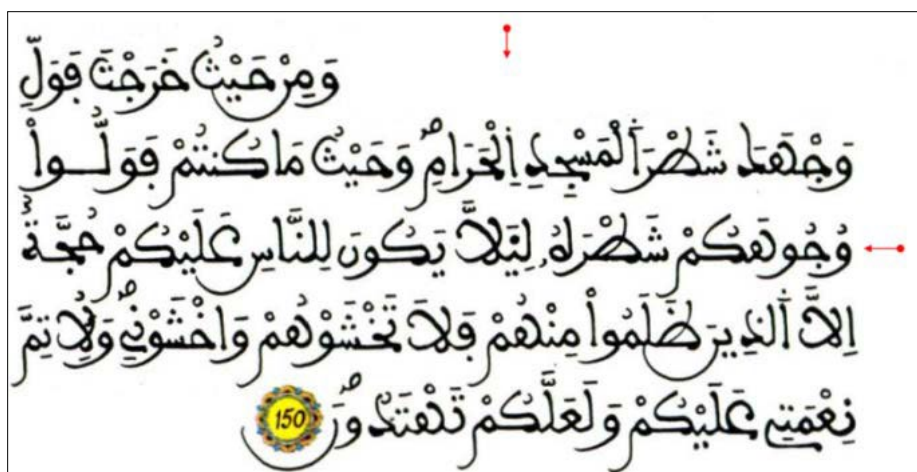 وَمِنْ حَيْثُ خَرَجْتَ فَوَلِّ
وَجْهَكَ شَطْرَ اَ۬لْمَسْجِدِ اِ۬لْحَرَامِۖ وَحَيْثُ مَا كُنتُمْ فَوَلُّواْ
وُجُوهَكُمْ شَطْرَهُۥ لِيَلَّا يَكُونَ لِلنَّاسِ عَلَيْكُمْ حُجَّةٌ
اِلَّا اَ۬لذِينَ ظَلَمُواْ مِنْهُمْ فَلَا تَخْشَوْهُمْ وَاخْشَوْنِےۖ وَلِأُتِمَّ
نِعْمَتِے عَلَيْكُمْ وَلَعَلَّكُمْ تَهْتَدُونَۖ 150